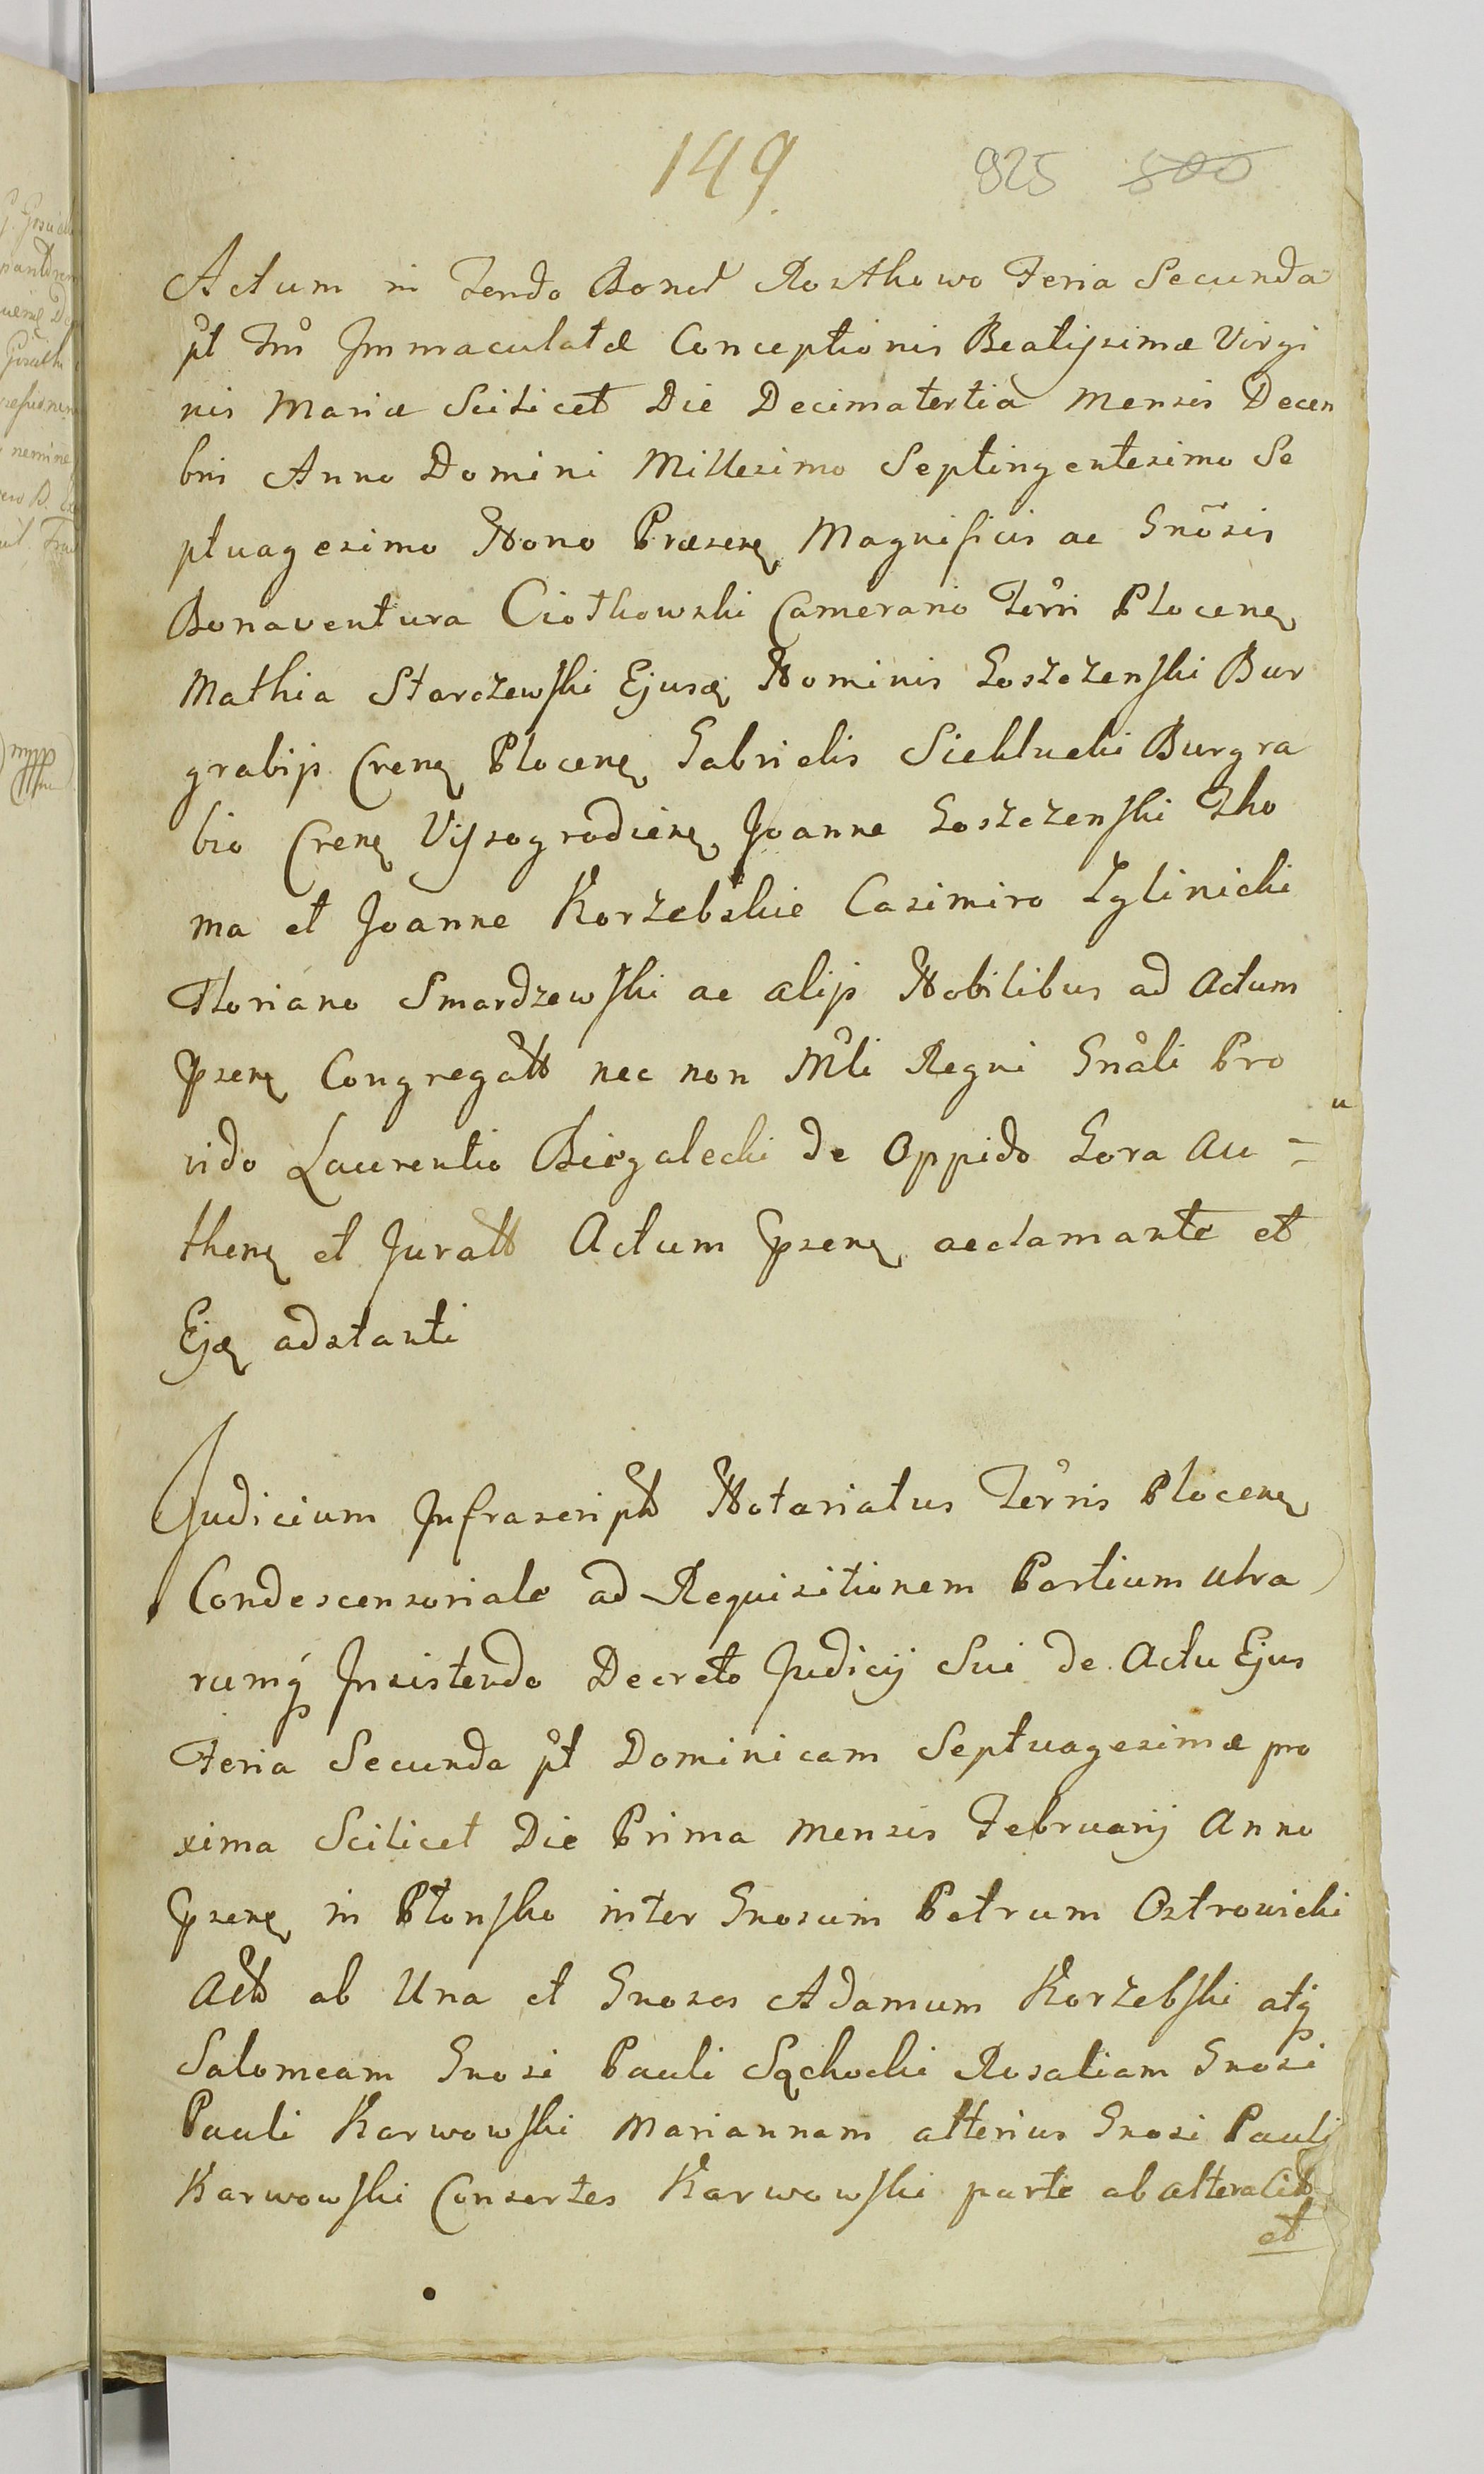 149 925 500
Actum in Fendo Bonor Rostkowo Feria Secunda
pt Fm Immaculatæ Conceptionis Beatissimæ Virgi
nis Mariæ Scilicet Die Decimatertia Mensis Decem
bris Anno Domini Millesimo Septingentesimo Se
ptuagesimo Nono Præsen Magnificis ac Gnosis
Bonaventura Ciołkowski Camerario Terri Plocen
Mathia Starczewski Ejusd Nominis Goszczenski Bur
grabijs Cren Plocen Gabrielis Sieklucki Burgra
bio Cren Vissogrodien Joanne Goszczenski Tho
ma et Joanne Korzebskie Casimiro Zglinicki
Floriano Smardzewski ac alijs Nobilibus ad Actum
psen Congregatt nec non Mli Regni Gnali Pro
vido Laurentio Biegalecki de Oppido Gora Au =
then et Juratt Actum psen acclamante et
Ejd adstanti
Judicium Infrascript Notariatus Terris Plocen
Condescensoriale ad Requisitionem Partium utra
rumq Insistendo Decreto Judicij Sui de Actu Ejus
Feria Secunda pt Dominicam Septuagesimæ pro
xima Scilicet Die Prima Mensis Februarij Anno
psen in Płonsko inter Gnosum Petrum Ostrowicki
Act ab Una et Gnosos Adamum Korzebski atq
Salomeam Gnosi Pauli Sąchocki Rosaliam Gnosi
Pauli Karwowski Mariannam alterius Gnosi Pauli
Karwowski Consortes Karwowskie parte ab altera Citt
et